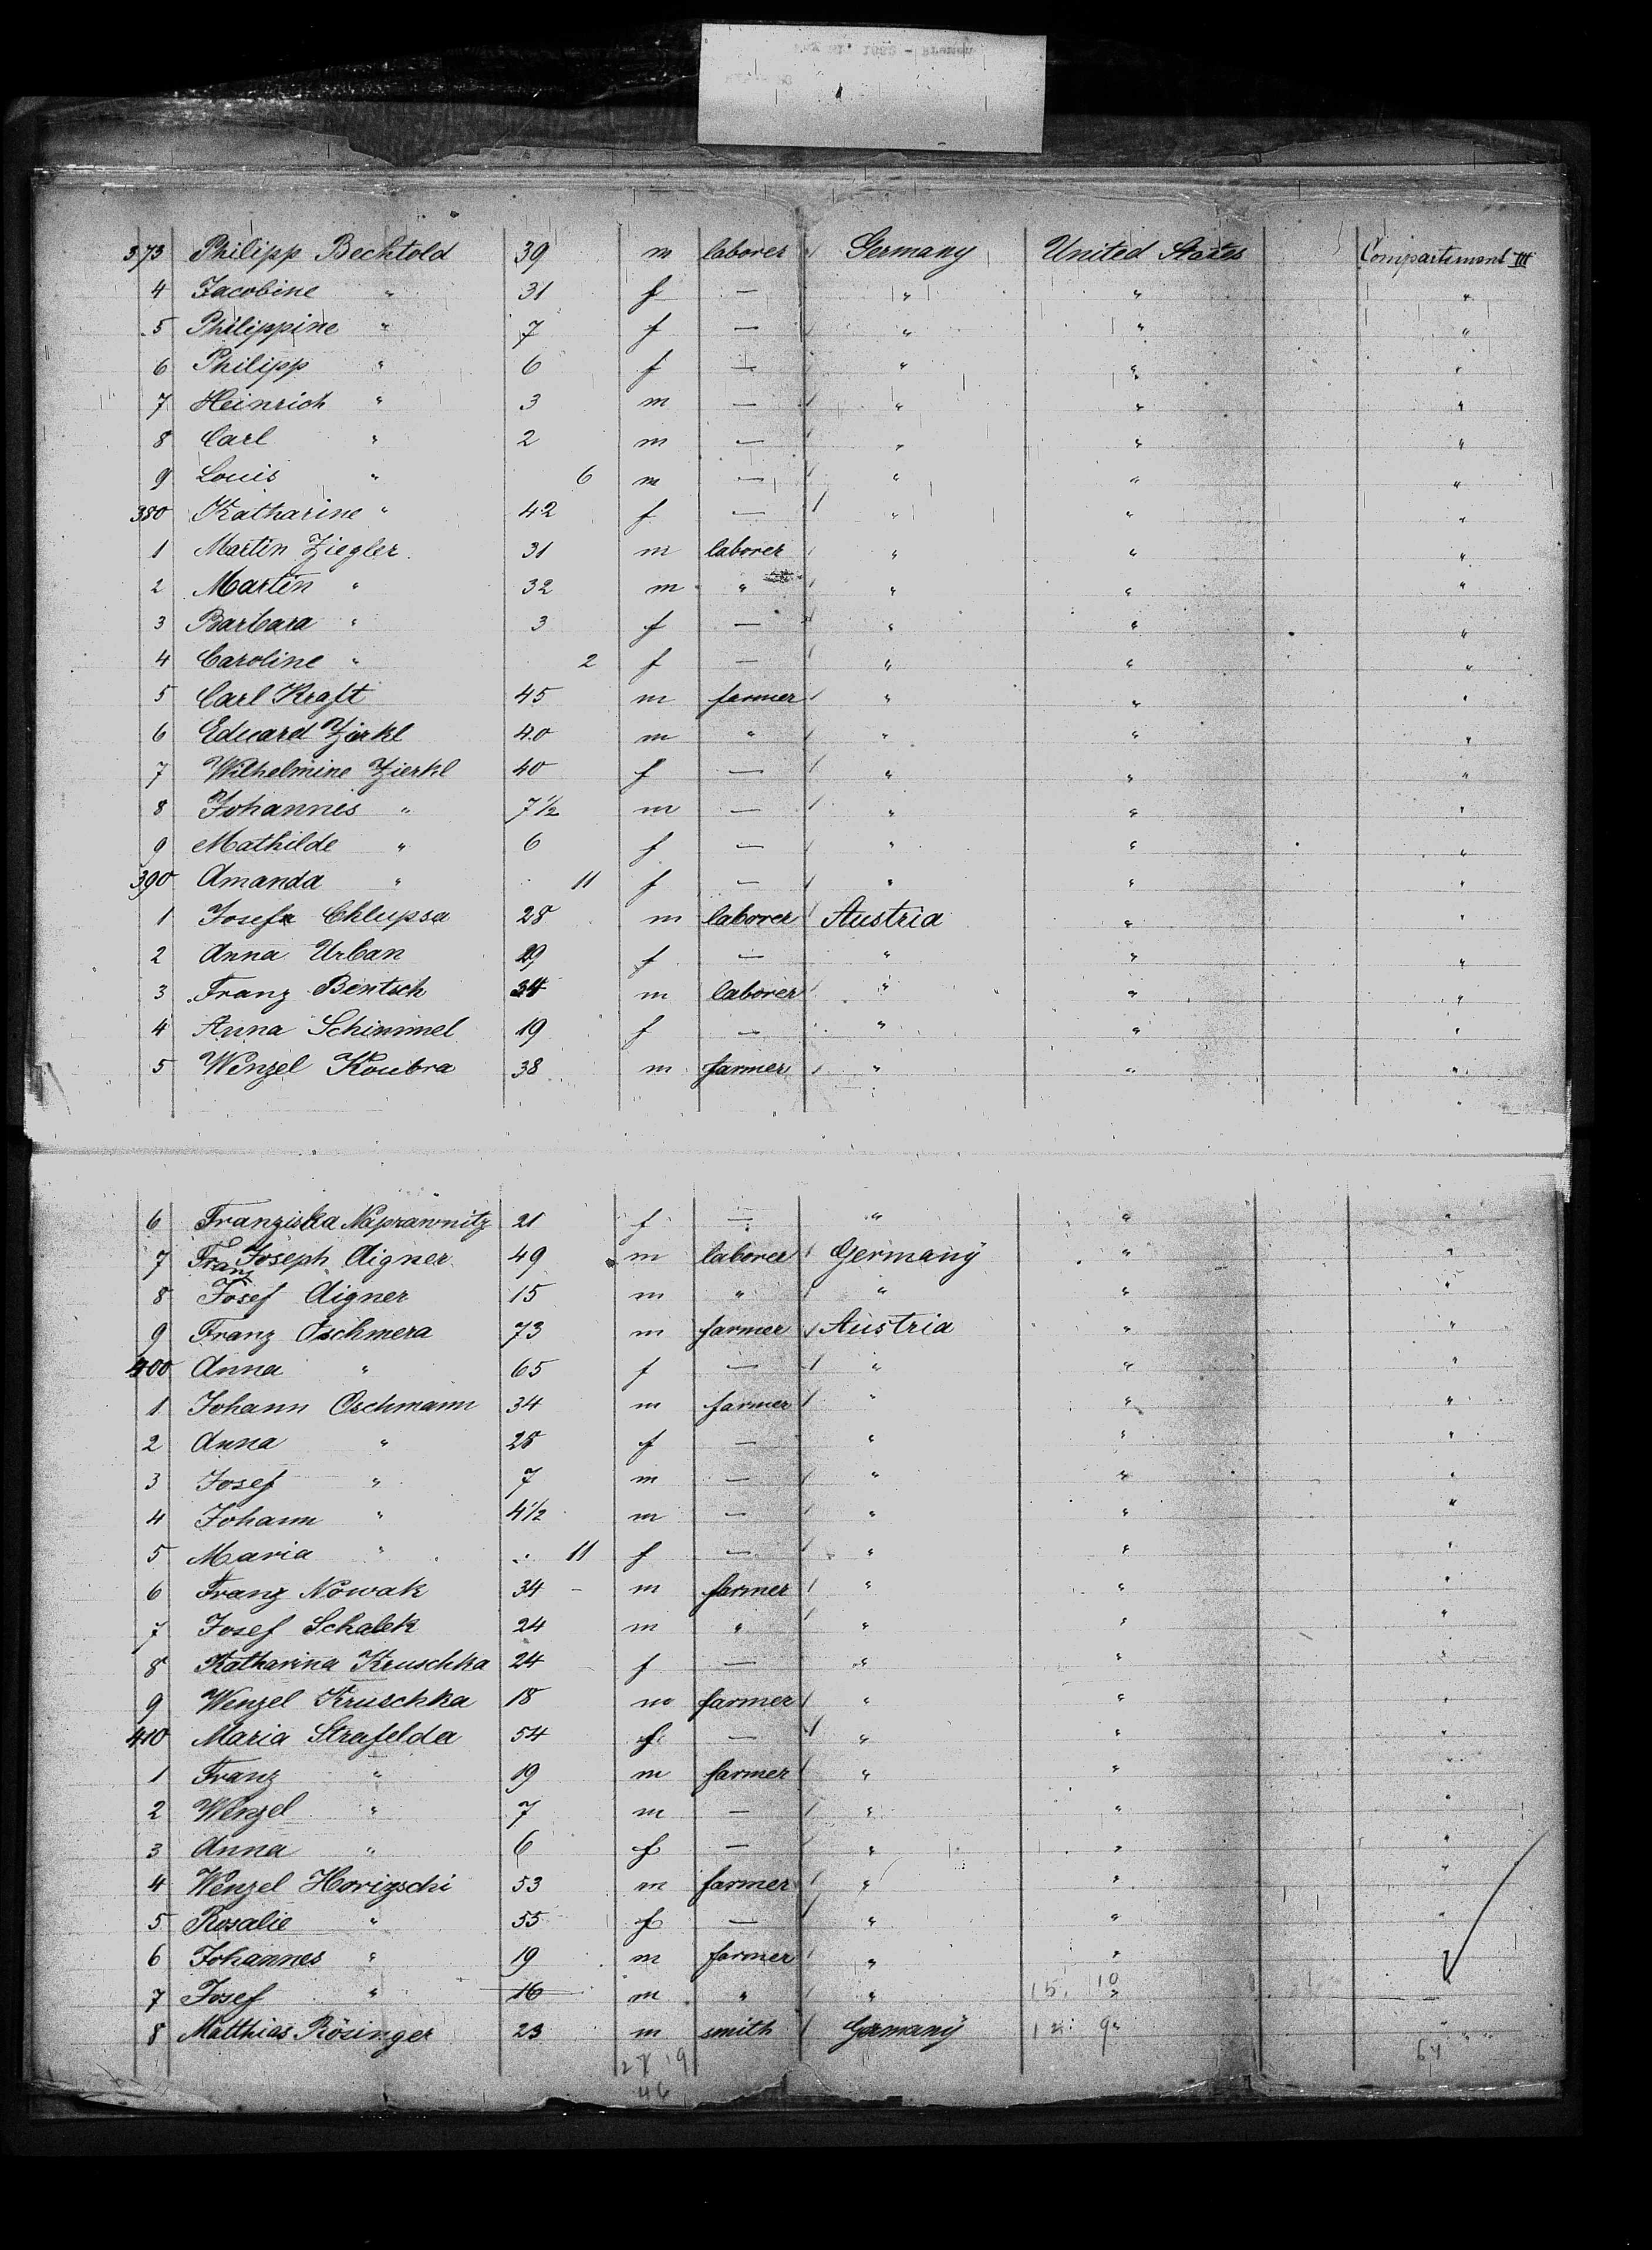 373 Philipp Bechtold 39 m laborer Germany United States Compartiment III
4 Jacobine " 31 f — " " "
5 Philippine " 7 f — " " "
6 Philipp " 6 f — " " "
7 Heinrich " 3 m — " " "
8 Carl " 2 m — " " "
9 Louis " 6 m — " " "
380 Katharine " 42 f — " " "
1 Martin Ziegler 31 m laborer " " "
2 Martin " 32 m " " " "
3 Barbara " 3 f — " " "
4 Caroline " 2 f — " " "
5 Carl Kraft 45 m farmer " " "
6 Eduard Zirkl 40 m " " " "
7 Wilhelmine Zierkl 40 f — " " "
8 Johannes " 7 1/2 m — " " "
9 Mathilde " 6 f — " " "
390 Amanda " 11 f — " " "
1 Josef Chlupsa 28 m laborer Austria " "
2 Anna Urban 29 f — " " "
3 Franz Bentsch 34 m laborer " " "
4 Anna Schimmel 19 f — " " "
5 Wenzel Koubra 38 m farmer " " "
6 Franziska Naprawnitz 21 f — " " "
7 Franz Joseph Aigner 49 m laborer Germany " "
8 Josef Aigner 15 m " " " "
9 Franz Oschmera 73 m farmer Austria " "
400 Anna " 65 f — " " "
1 Johann Oschmann 34 m farmer " " "
2 Anna " 28 f — " " "
3 Josef " 7 m — " " "
4 Johann " 4 1/2 m — " " "
5 Maria " 11 f — " " "
6 Franz Nowak 34 m farmer " " "
7 Josef Schalek 24 m " " " "
8 Katharina Kruschka 24 f — " " "
9 Wenzel Kruschka 18 m farmer " " "
410 Maria Strafelda 54 f — " " "
1 Franz " 19 m farmer " " "
2 Wenzel " 7 m — " " "
3 Anna " 6 f — " " "
4 Wenzel Horizschi 53 m farmer " " "
5 Rosalie " 55 f — " " "
6 Johannes " 19 m farmer " " "
7 Josef " 16 m " " 15 10 "
8 Matthias Rösinger 23 m smith Germany 12 9 " "
27 19 64
46